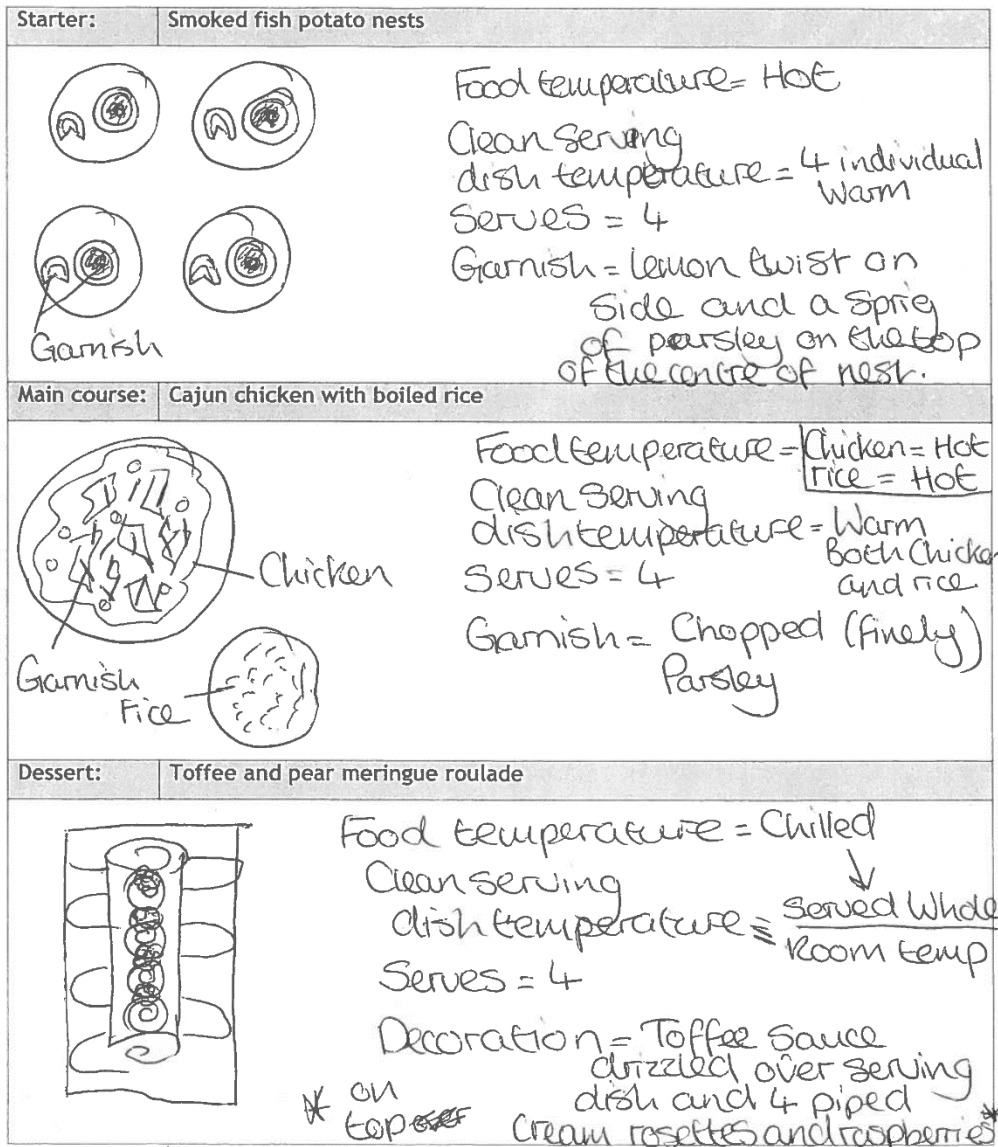 Starter: Smoked fish potato nests
Food temperature = Hot
Clean serving
dish temperature = 4 individual
Warm
Serves = 4
Garnish = lemon twist on
side and a sprig
of parsley on the top
of the centre of nest.
Garnish
Main course: Cajun chicken with boiled rice
Food temperature = Chicken = Hot
rice = Hot
Clean serving
dish temperature = Warm
Both Chicken
and rice
Serves = 4
Garnish = Chopped (finely)
Parsley
Chicken
Garnish
rice
Dessert: Toffee and pear meringue roulade
Food temperature = Chilled
Clean serving
dish temperature = Served Whole
Room temp
Serves = 4
Decoration = Toffee sauce
drizzled over serving
dish and 4 piped
Cream rosettes and raspberries*
* on
top